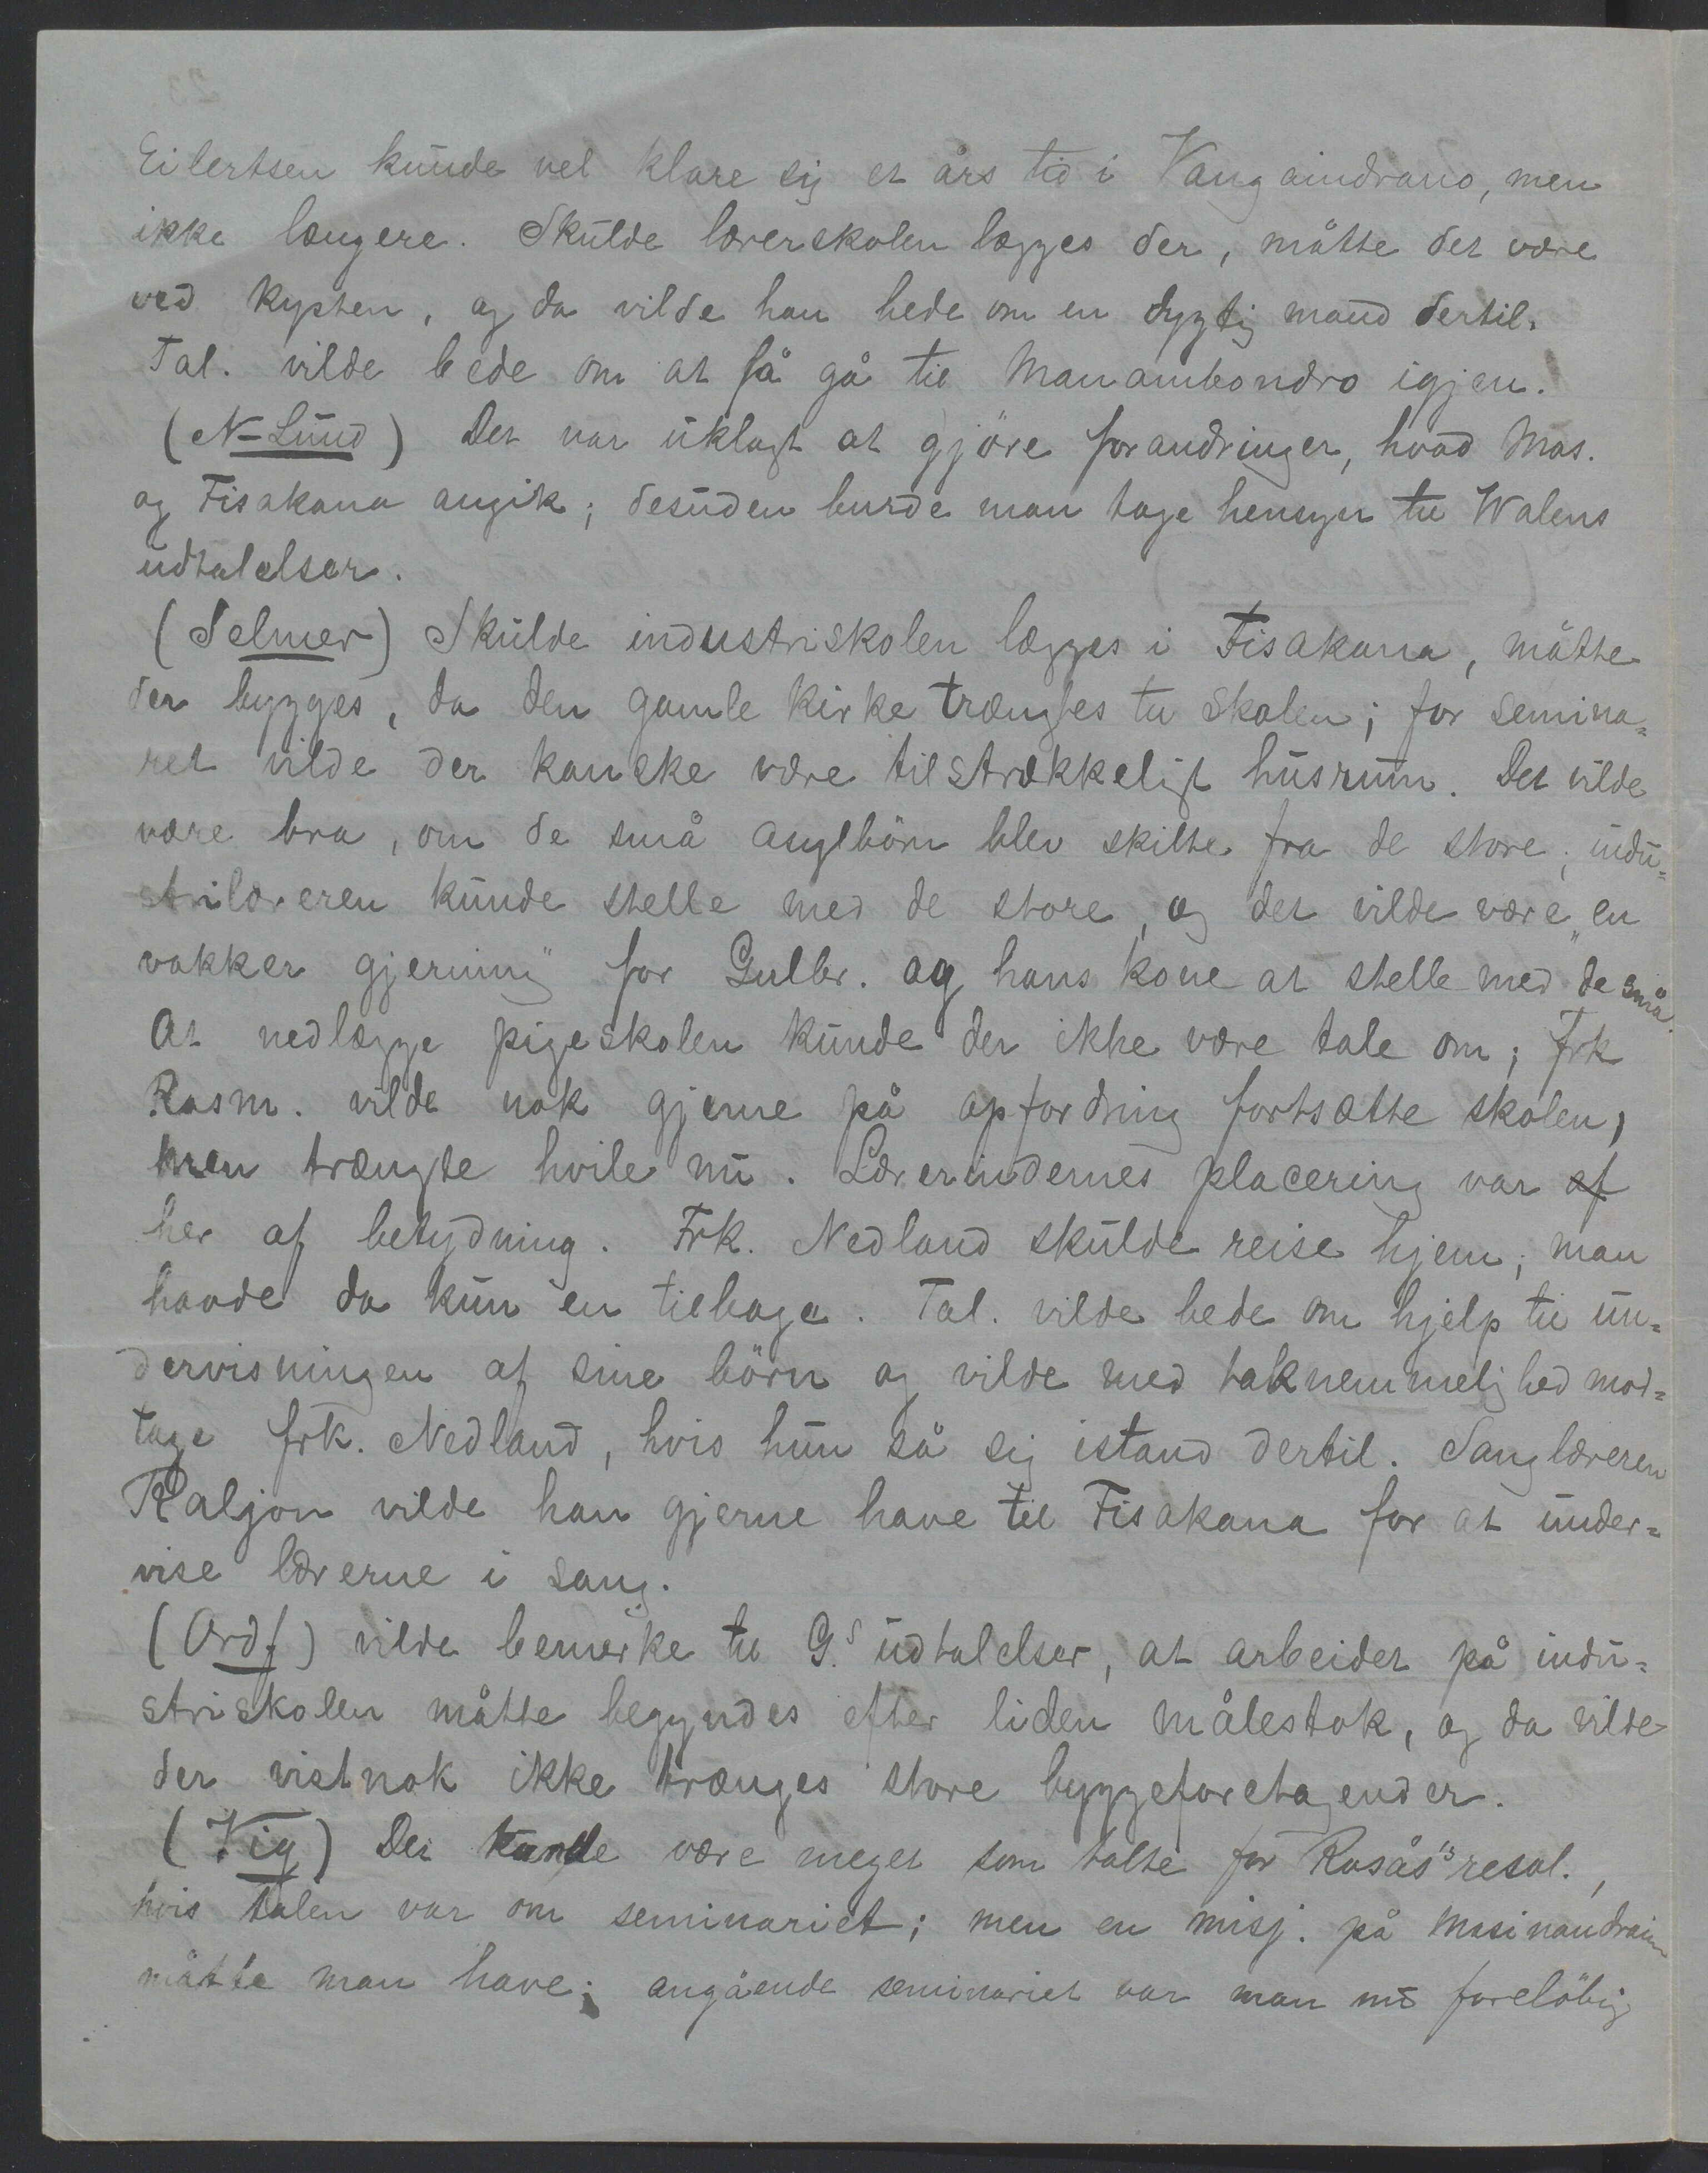 Eilertsen kunde vel klare sig et års tid i Vangaindrano, men
ikke længere. Skulde lærerskolen lægges der, måtte det være
ved kysten, og da vilde han bede om en dygtig mand dertil.
Tal. vilde bede om at få gå til Manambondro igjen.
(N-Lund) Det var uklogt at gjöre forandringer, hvad Mas.
og Fisakana angik; desuden burde man tage hensyn til Walens
udtalelser.
(Selmer) Skulde industriskolen lægges i Fisakana, måtte
der bygges, da den gamle kirke trængtes til skolen; for semina=
ret vilde der kanske være tilstrækkeligt husrum. Det vilde
være bra, om de små asylbörn blev skilte fra de store; indu=
strilæreren kunde stelle med de store, og det vilde være "en
vakker gjerning" for Gulbr. og hans kone at stelle med de små.
At nedlægge pigeskolen kunde der ikke være tale om; Frk
Rasm. vilde nok gjerne på opfordring fortsætte skolen,
men trængte hvile nu. Lærerindernes placering var af
her af betydning. Frk. Nedland skulde reise hjem; man
havde da kun en tilbage. Tal. vilde bede om hjelp til un=
dervisningen af sine börn og vilde med taknemmelighed mod=
tage frk. Nedland, hvis hun så sig istand dertil. Sanglæreren
Raljon vilde han gjerne have til Fisakana for at under=
vise lærerne i sang.
(Ordf) vilde bemerke til G.s udtalelser, at arbeidet på indu=
striskolen måtte begyndes efter liden målestok, og da vilde
der vistnok ikke trænges store byggeforetagender.
(Vig) Det kunde være meget som talte for Rosås's resol.,
hvis talen var om seminariet; men en misj. på Masinandraina
måtte man have; angående seminariet var man nu forelöbig